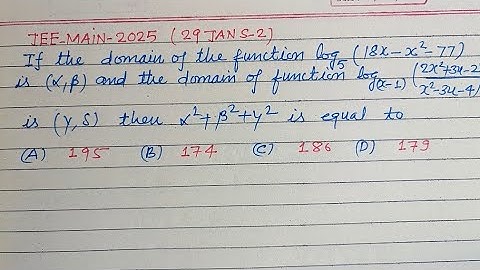 JEE-MAIN-2025 (29 JAN S-2)
If the domain of the function log₅ (18x-x²-77)
is (α,β) and the domain of function log₍ₓ₋₁₎ (2x²+3x-2/x²-3x-4)
is (γ,δ) then α²+β²+γ² is equal to
(A) 195 (B) 174 (C) 186 (D) 179